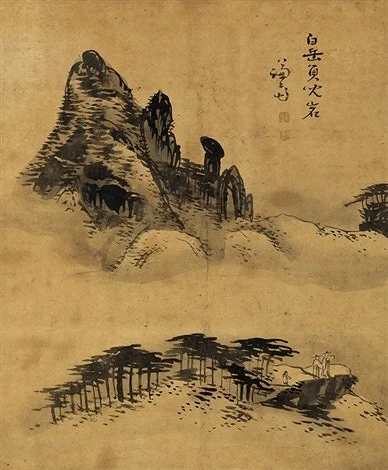 白岳負兒岩
謙齋